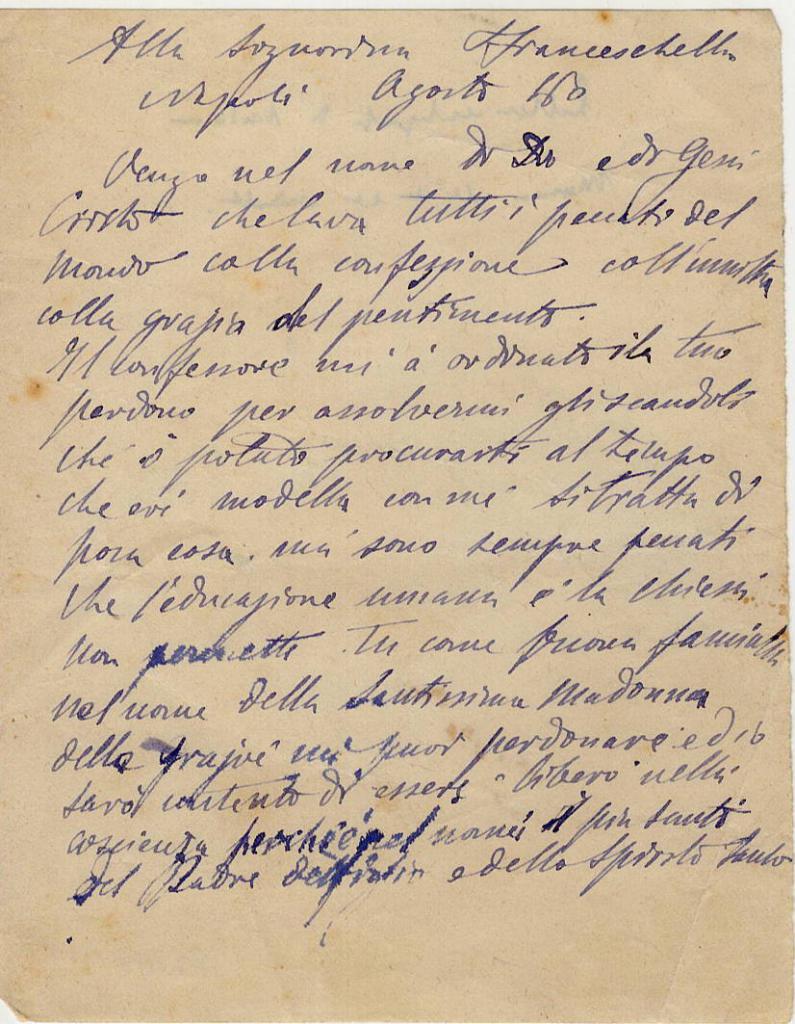 Alla Signorina Franceschella
Napoli Agosto
Vengo nel nome di Dio e di Gesù
Cristo che lava tutti i peccati del
mondo colla confezzione coll'
colla grazia del pentimento.
Il confessore mi à ordinato il tuo
perdono per assolvermi gli scandoli
che ò potuto procurarti al tempo
che eri modella con me si tratta di
poca cosa. ma sono sempre peccati
che l'educazione umana e la chiesa
non permette Tu come buona
nel nome della Santissima Madonna
delle grazie mi puoi perdonare ed io
sarò contento di essere libero nella
coscienza perché nel nome il più santo
del Padre del figlio e dello Spirito Santo